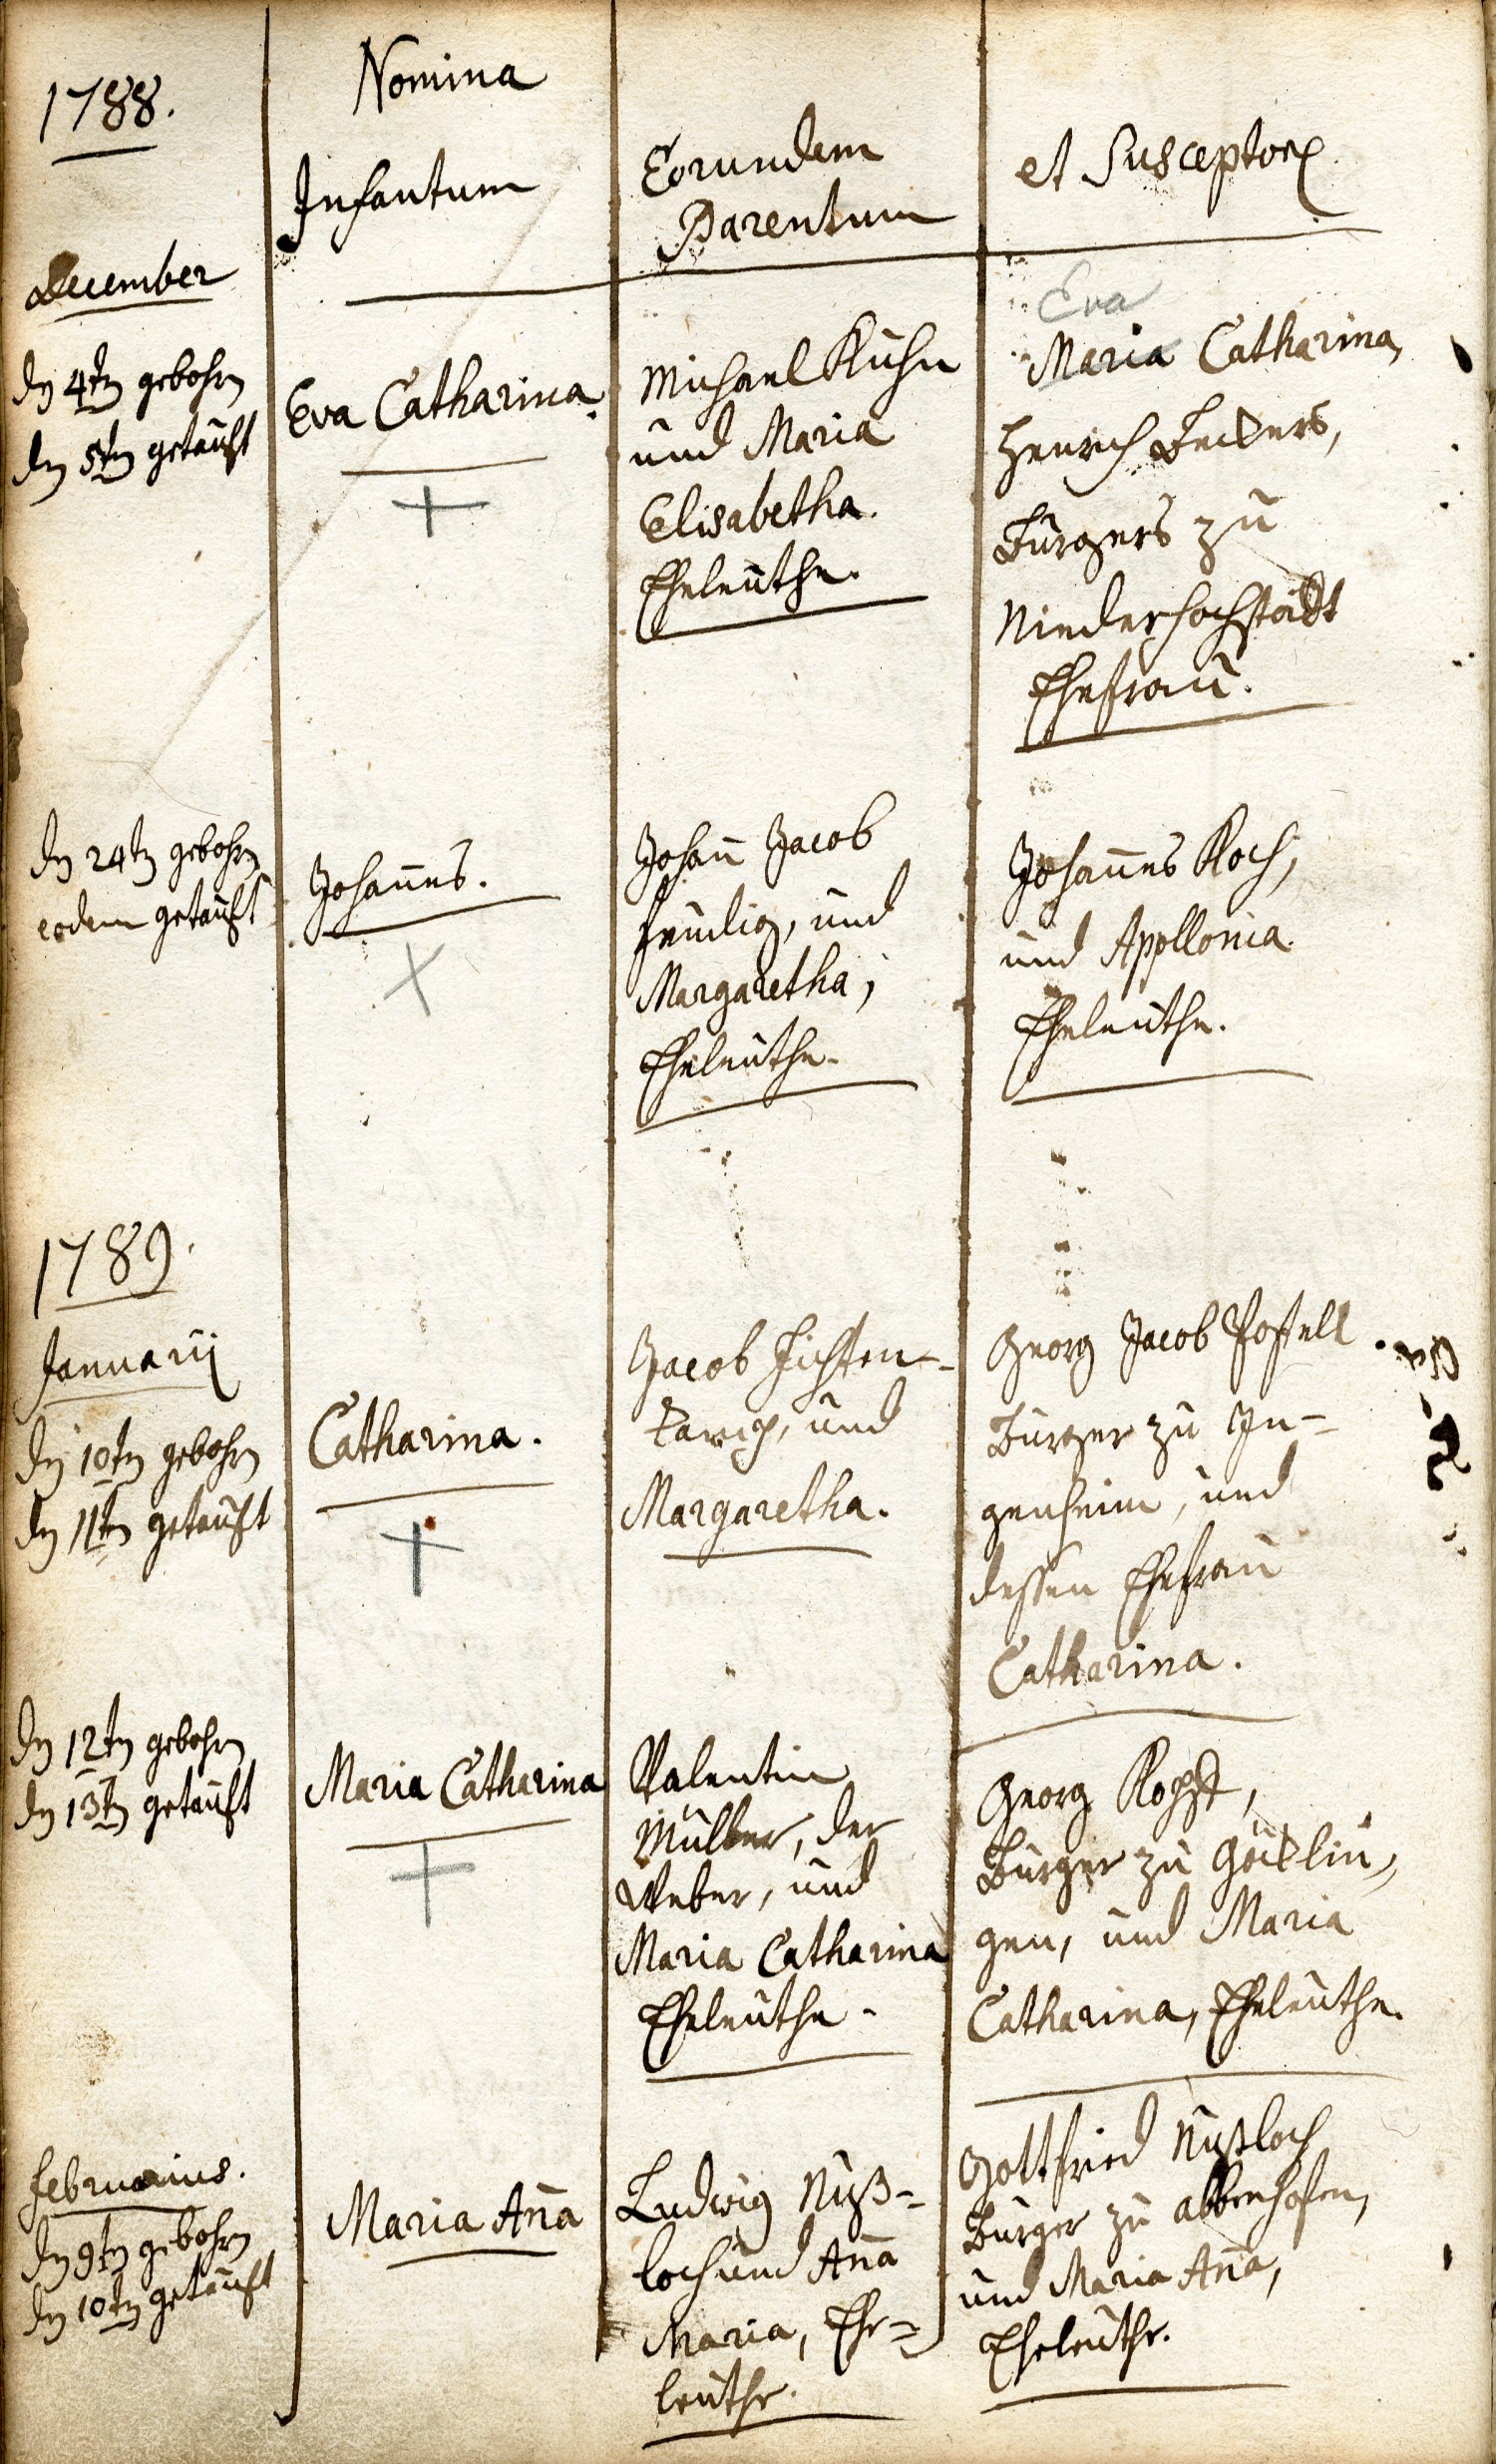 1788.
Nomina
Infantum
Eorundem
Parentum
et Susceptor
December
den 4ten gebohrn
den 5ten getauft
Eva Catharina.
Michael Kuhn
und Maria
Elisabetha.
Eheleuthe.
Eva
Maria Catharina,
Henrich Beckers,
Burgers zu
Niederhochstadt
Ehefrau.
den 24ten gebohrn
eodem getauft
Johañes.
Johañ Jacob
und
Margaretha,
Eheleuthe.
Johañes Koch,
und Apollonia
Eheleuthe.
1789.
Januarij
den 10ten gebohrn
den 11ten getauft
Catharina.
Jacob Fichten-
und
Margaretha.
Georg Jacob
Burger zu In-
genheim, und
dessen Ehefrau
Catharina.
den 12ten gebohrn
den 13ten getauft
Maria Catharina
Valentin
Müller, der
Weber, und
Maria Catharina
Eheleuthe.
Georg
Burger zu Göcklin-
gen, und Maria
Catharina, Eheleuthe.
Februarius.
den 9ten gebohrn
den 10ten getauft
Maria Aña
Ludwig Nuß-
loch und Aña
Maria, Ehe-
leuthe.
Gottfried Nußloch
Burger zu
und Maria Aña,
Eheleuthe.